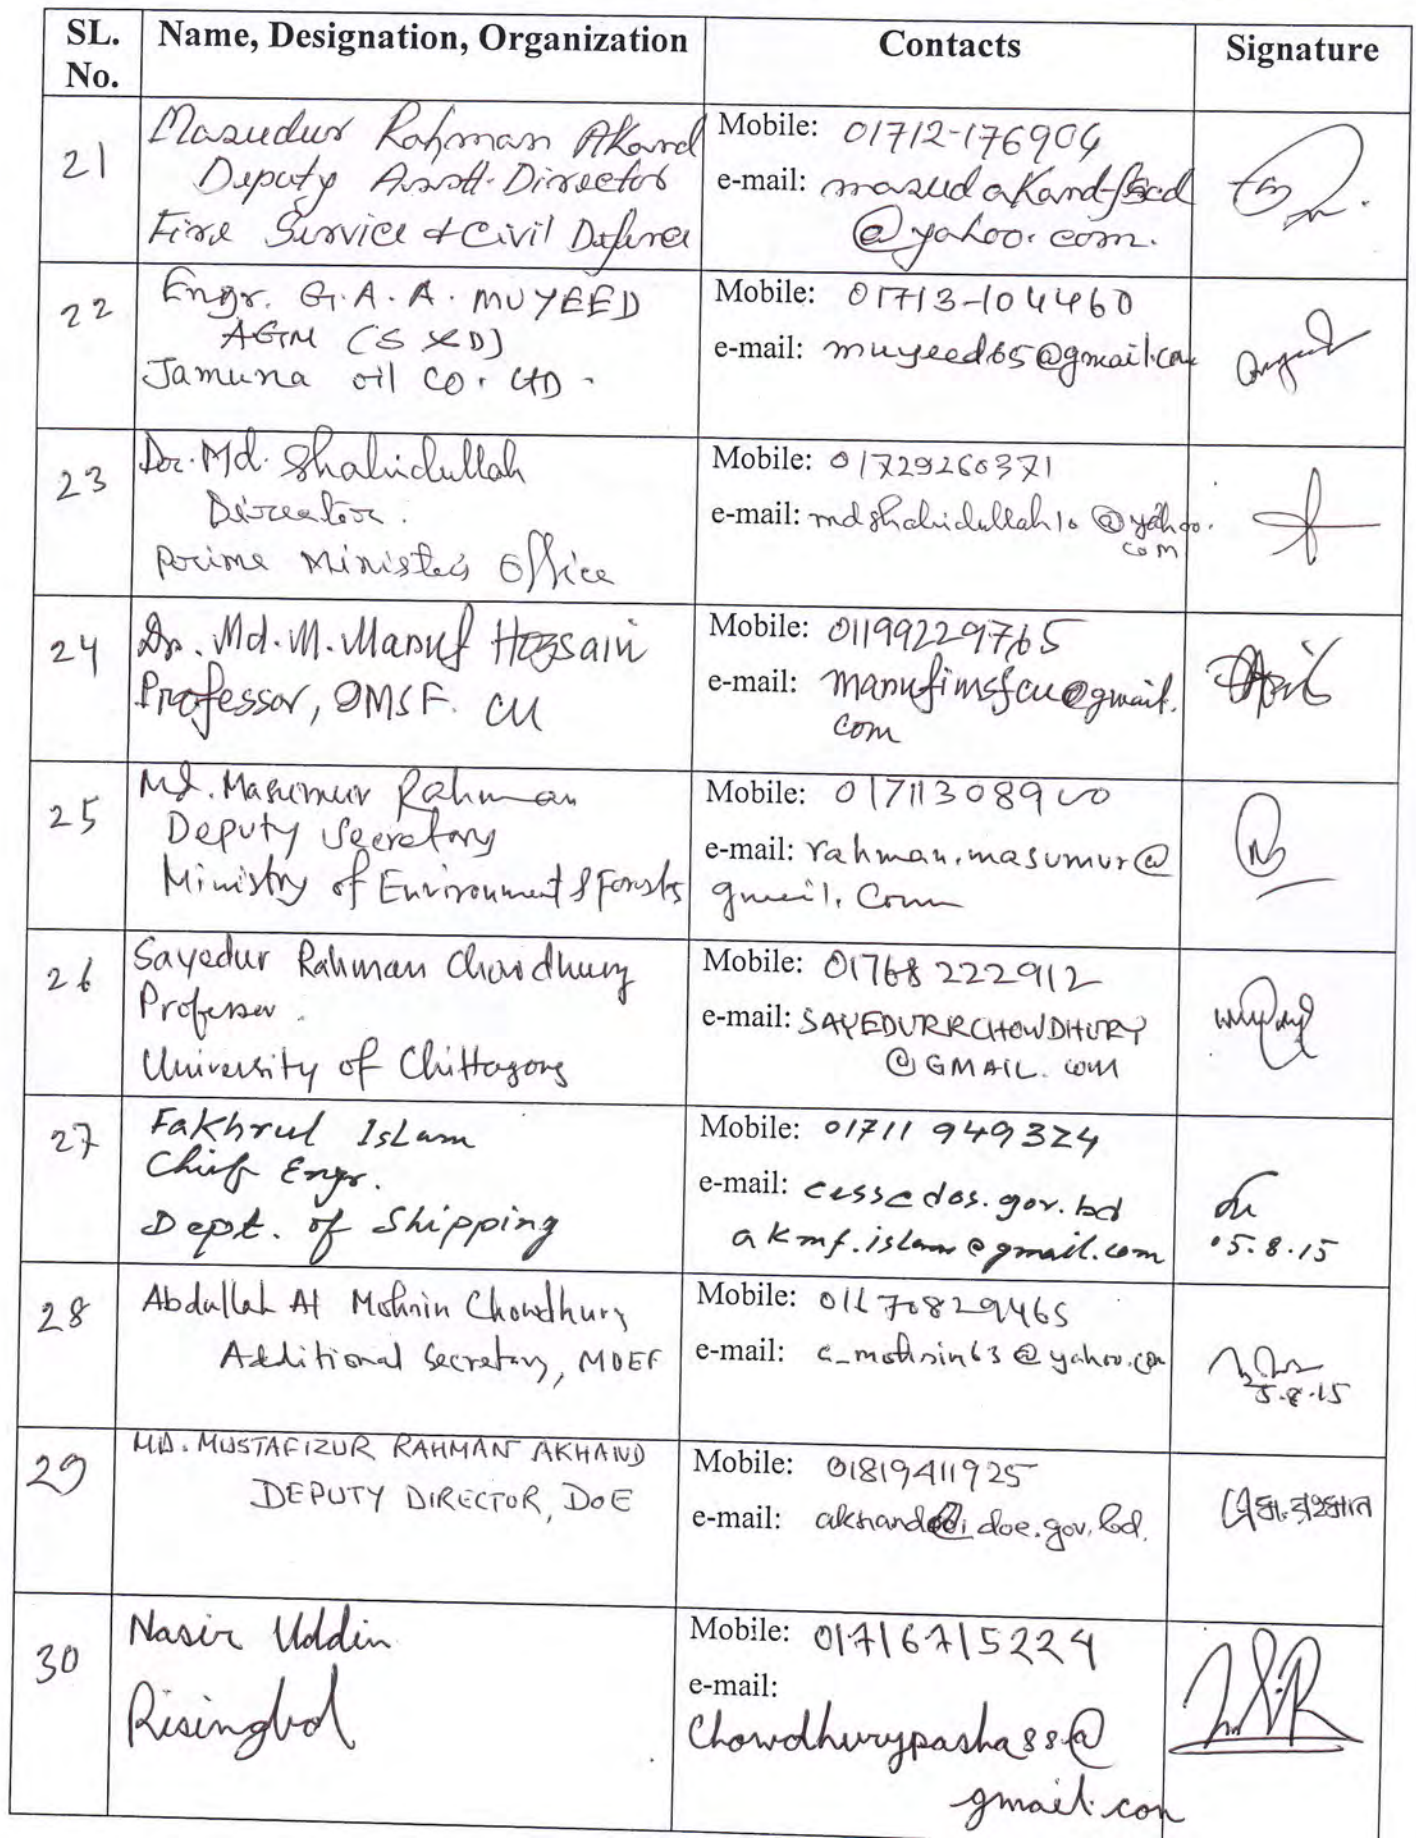 SL. No.
Name, Designation, Organization
Contacts
Signature
21
Masudur Rahman Akand
Deputy Asstt. Director
Fire Service & Civil Defence
Mobile: 01712-176904
e-mail: masudakand-fscd
@yahoo.com.
22
Engr. G.A.A. MUYEED
AGM (S & D)
Jamuna oil co. LTD.
Mobile: 01713-104460
e-mail: muyeed65@gmail.com
23
Dr. Md. Shahidullah
Director.
Prime Minister's Office
Mobile: 01729260371
e-mail: mdshahidullah10@yahoo.
com
24
Dr. Md. M. Maruf Hossain
Professor, IMSF. CU
Mobile: 01199229765
e-mail: marufimsfcu@gmail.
com
25
Md. Masumur Rahman
Deputy Secretary
Ministry of Environment & Forests
Mobile:
e-mail: rahman.masumur@
gmail.com
26
Sayedur Rahman Chowdhury
Professor.
University of Chittagong
Mobile: 01768 222912
e-mail: SAYEDURRCHOWDHURY
@GMAIL.com
27
Fakhrul Islam
Chief Engr.
Dept. of Shipping
Mobile: 01711 949324
e-mail: cess@dos.gov.bd
akmf.islam@gmail.com
05.8.15
28
Abdullah Al Mohsin Chowdhury
Additional Secretary, MOEF
Mobile:
e-mail: a_mohsin63@yahoo.com
5.8.15
29
MD. MUSTAFIZUR RAHMAN AKHAND
DEPUTY DIRECTOR, DOE
Mobile: 01819411925
e-mail: akhand@doe.gov.bd.
30
Nasir Uddin
Risingbd
Mobile: 01716715224
e-mail:
Chowdhurypasha88@
gmail.com